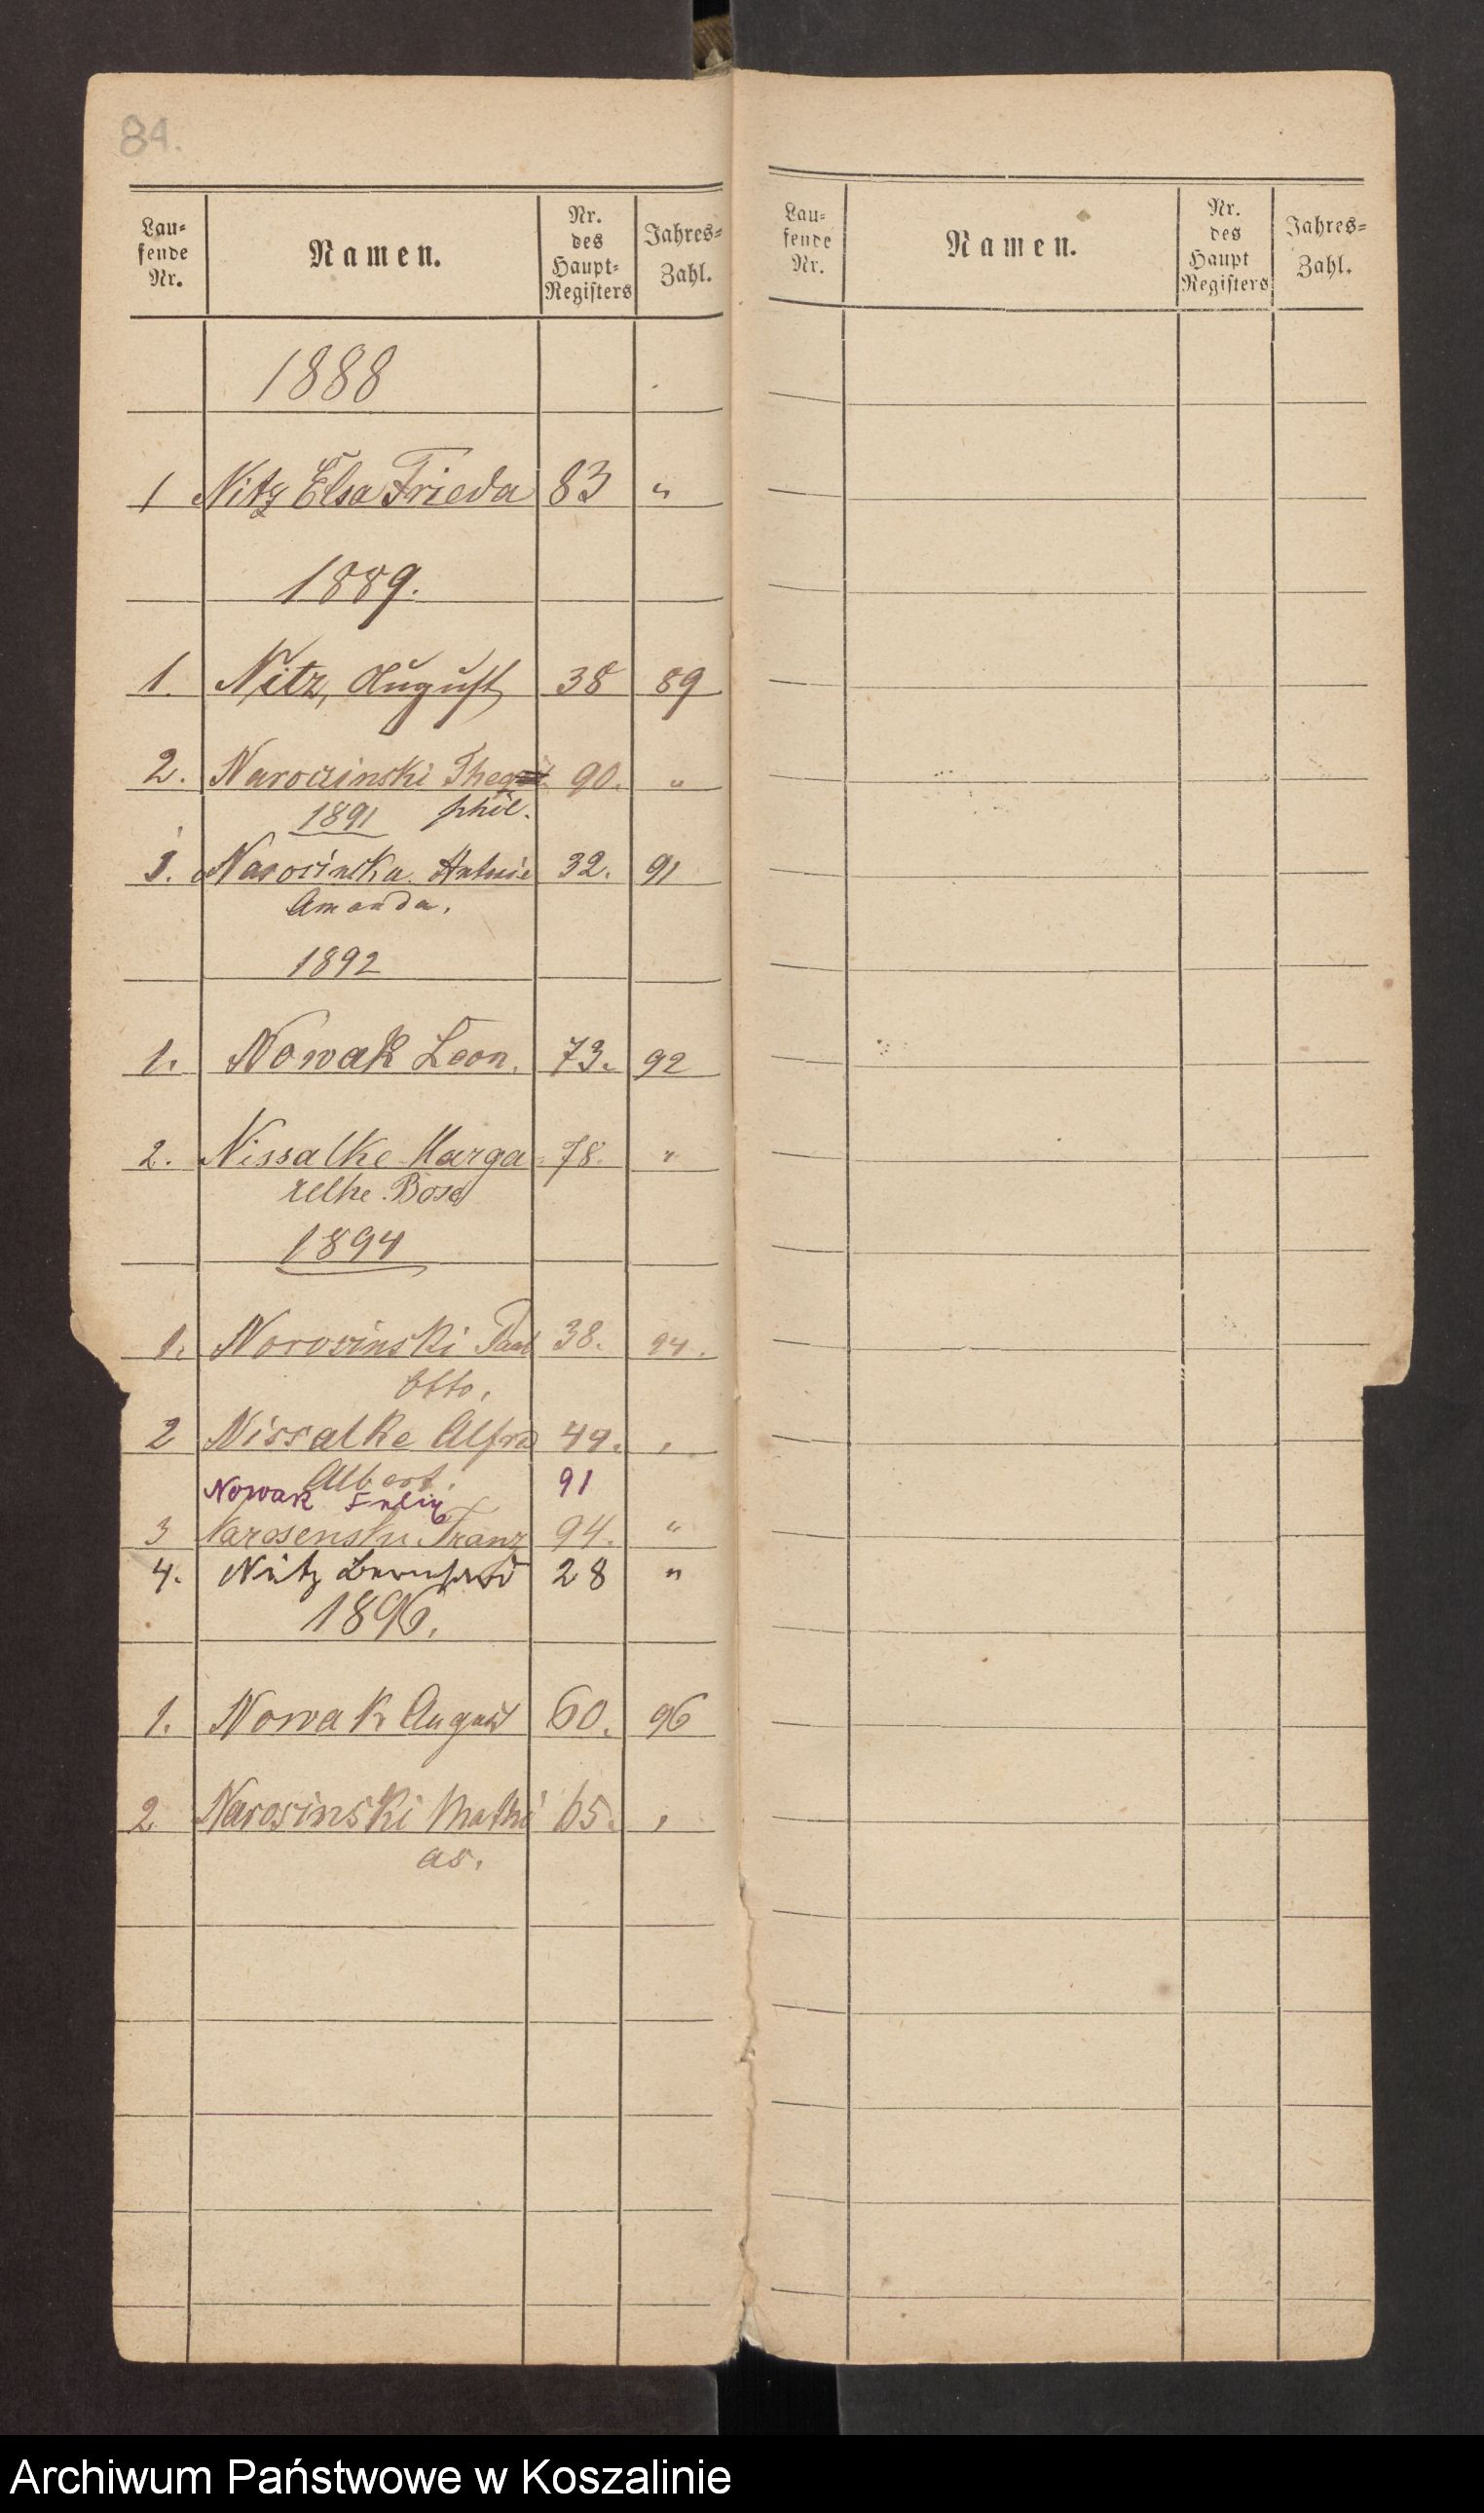 84.
Lau-
fende
Nr.
Namen.
Nr.
des
Haupt-
Registers
Jahres-
Zahl.
1888
1 Nitz Elsa Frieda 83 "
1889.
1. Nitz, August 38 89
2. Narozinski 90. "
1891 phil.
1. Narosinska 32. 91
Amanda.
1892
1. Nowak Leon. 73. 92
2. Nissalke Marga 78. "
1894
1. Norosinski Paul 38. 94.
Otto.
2 Nissalke Alfred 49. "
Albert.
Nowak Felix 91
3 Franz 94. "
4. Nitz Bernhard 28 "
1896.
1. Nowak August 60. 96
2 Narosinski Mathi 65. "
as.
Lau-
fende
Nr.
Namen.
Nr.
des
Haupt
Registers
Jahres-
Zahl.
Archiwum Państwowe w Koszalinie